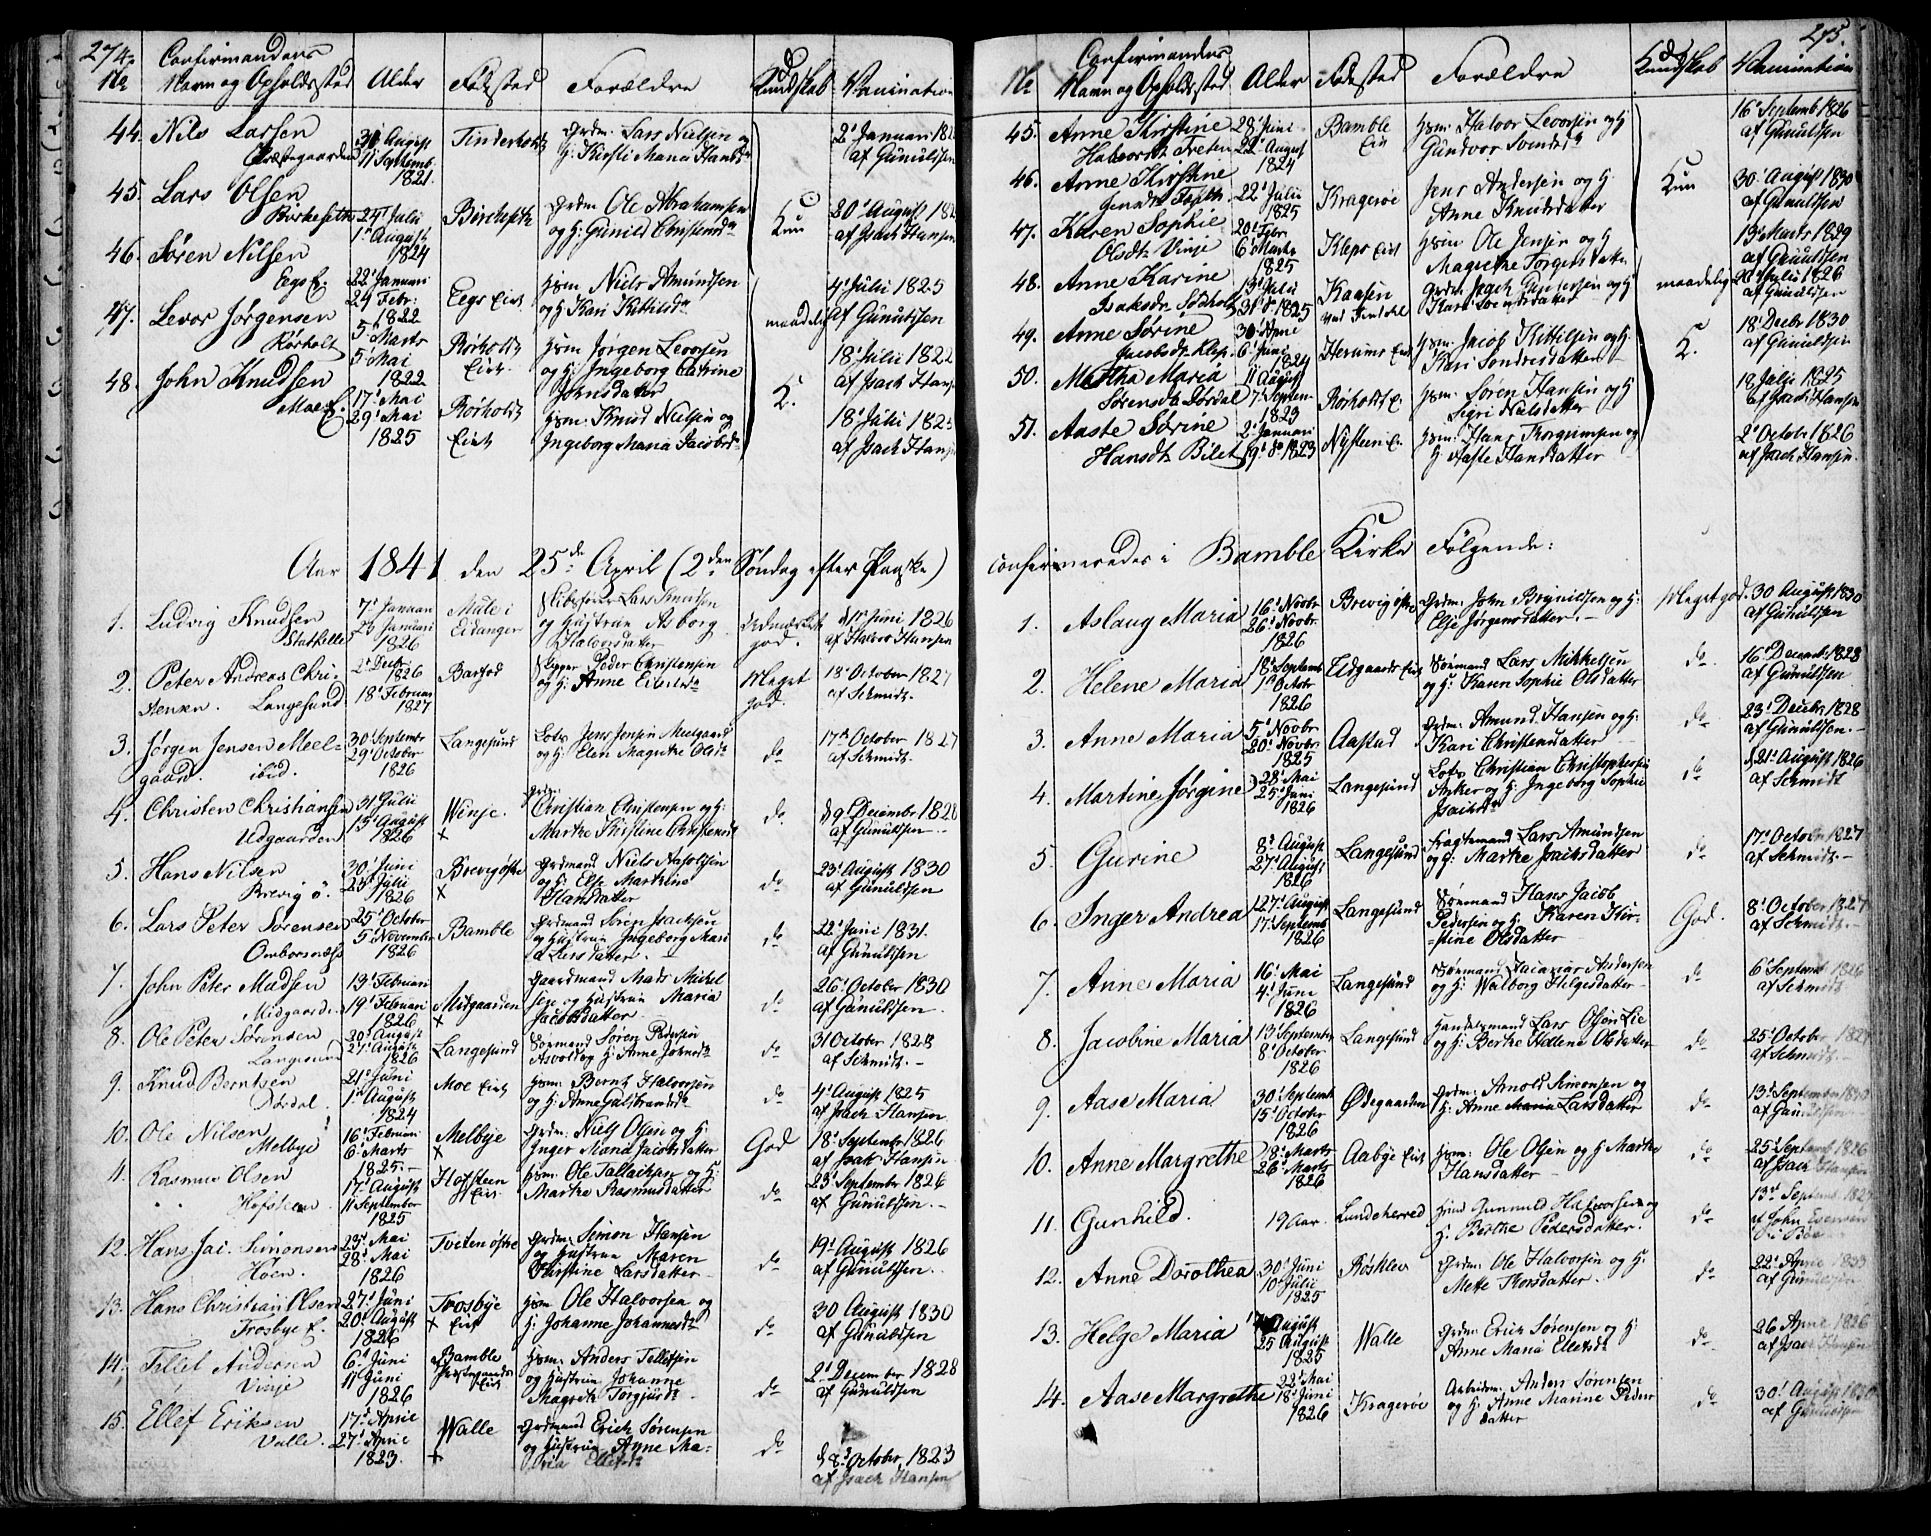 274.
No
Confirmanders
Navn og Opholdssted
Alder
Fødested
Forældre
Kundskab
Vaxination
44. Nils Larsen
Præstegaarden
31 August
11 Septemb.
1821.
Tinderholt
Grdm: Lars Nielsen og
H: Kirsti Maria Hansd.
2d Januari
af Gunuldsen
45. Lars Olsen
Birkeseth
24d Julii
1d August
1824
Grdm Ole Abrahamsen
og H: Gunild Christensd.
Kun
20d August
af Isach Hansen
46. Søren Nilsen
Eegs E.
22d Januari
24 Febr:
1822
Eegs Eiet
Hsm Niels Amundsen
og H Kari Kittilsd.
4d Julii 1825
af Gunuldsen
47. Levor Jørgensen
Rørholt
5d Marts
5d Mai
1822
Rørholts
Eiet.
Hsm Jørgen Levorsen
og H: Ingeborg Catrine
Johnsdatter
18d Julii 1822
af Isach Hansen
48. John Knudsen
Moe E.
17d Mai
29d Mai
1825
Rørholts
Eiet
Hsm: Knud Nielsen og
Ingeborg Maria Jacobsd.
K.
18d Julii
af Isach Hansen
Aar 1841 den 25de April (2den Søndag efter Paaske)
1. Ludvig Knudsen
Stathelle
7d Januari
Januari
1826
Mule i
Eidanger
Lars Knudsen
og Hustrue Asborg
Halvorsdatter
Udmærket
god.
Juni 1826
af Halvor Hansen
2. Peter Andreas Chri-
stensen. Langesund
2d Decbr
1826
18d Februari
1827
Skipper Peder Christensen
og H: Anne
Meget
god.
18d October 1827
af Schmidt.
3. Jørgen Jensen Meel-
gaard. ibid.
30 September
29d October
1826
Langesund
Lods Jens Jensen Meelgaard
og H: Elen Magrete Olsd.
do
17d October 1827
af Schmidt.
4. Christen Christiansen
Udgaarden
31d Julii
13d August
1826
Winje.
Grdm:
Christian Christensen og H:
Marthe Kirstine Christensd.
do
9d December 1828
af Gunuldsen
5. Hans Nilsen
Brevig ø.
30d Juni
23d Julii
1826
Brevig østre
Grdmand Niels
og H: Else Marthine
Hansdatter
do
23d August 1830
af Gunuldsen
6. Lars Peter Sørensen
Omborsnæs
25d October
5d November
1826
Bamble
Grdmand Søren Isachsen
og Hustrue Ingeborg Mari
a Larsdatter
do
22d Juni 1831.
af Gunuldsen
7. John Peter Madsen
Midgaarden
13d Februari
19d Februari
1826
Midgaarden
Gaardmand Mads Mickel
sen og Hustrue Maria
Jacobsdatter
do
26d October 1830
af Gunuldsen.
8. Ole Peter Sørensen
Langesund
20d August
27d August
1826
Langesund
Sømand Søren Pedersen
Asvold og H: Anne Johnsd.
do
31 October 1828
af Schmidt.
9. Knud Berntsen
21d Juni
1d August
1824
Moe Eiet
Hsm: Bernt Halvorsen
og H: Anne
do
4d August 1825
af Isach Hansen
10. Ole Nilsen
Melbye
16d Februari
6d Marts
1825.
Melbye
Grdm: Niels Olsen og H:
Inger Maria Jacobsdatter
God
18d September 1826
af Isach Hansen
11. Rasmus Olsen
Hafsteen
17d August
11 September
1825
Hafsteen
Eiet.
Hsm: Ole Tallachsen og H:
Marthe Rasmusdatter
do
23d September 1826
af Gunuldsen.
12. Hans Jac. Simonsen
Høen.
23d Mai
28d Mai
1826
Tveten østre
Grdm: Simon Hansen
og Hustrue Maren
Kirstine Larsdatter
do
19d August 1826
af Gunuldsen.
13. Hans Christian Olsen
Trosbye E.
27d Juni
20d August
1826
Trosbye
Eiet
Hsm Ole Halvorsen og
H: Johanne Johannesd.
do
30 August 1830
af Gunuldsen
14. Tellef Andersen
Vinje
6d Juni
11 Juni
1826
Bamble
Præstegaards
Eiet
Hsm: Anders Tellefsen
og Hustrue Johanne
Magrete Torgiusd.
do
2d December 1828
af Gunuldsen
15. Ellef Eriksen
Valle.
17d April
27d April
1823.
Walle
Grdmand Erich Sørensen
og Hustrue Anne Ma-
ria Ellefsd.
do
8d October 1823
af Isach Hansen
275.
No
Confirmanders
Navn og Opholdssted
Alder
Fødested
Forældre
Kundskab
Vaxination
45. Anne Kirstine
Halvorsdt. Treten
28d Juni
22d August
1824
Bamble
Eie
Hsm: Halvor Levorsen og H
Gundvor Svendsd.
16d Septemb 1826
af Gunuldsen
46. Anne Kirstine
22d Julii
1825
Kragerøe
Jens Andersen og H:
Anne Knudsdatter
Kun
30d August 1830
af Gunuldsen
47. Karen Sophie
Olsdt. Vinje
20d Febr
6d Marts
1825
Kleps Eiet
Hsm Ole Jensen og H
Magrethe Torgersdatter
13d Marts 1829
af Gunuldsen
48. Anne Karine
Isaksdr.
13d Julii
31d do 1825
Grdm: Isach Pedersen og H
Kari Svendsdatter
maadelig
26d Julii 1826
af Gunuldsen
49. Anne Sørine
Jacobsdt. Klep
6d Juni
1824
Herums Eiet
Hsm: Jacob Kittilsen og H:
Kari Sondresdatter
K.
18d Decbr 1830
af Gunuldsen
50. Martha Maria
Sørensdt. Sørdal
11 August
7d Septem
1823
Rørholts E.
Hsm: Søren Hansen og H
Sigri Nielsdatter
18 Julii 1825
af Isach Hansen
51. Aaste Sørine
Hansdt. Bilet
2d Januari
19d do 1823
Nysteen E.
Hsm: Hans Torgrimsen og
H: Aaste Hansdatter
2d October 1826
af Isach Hansen
confirmeredes i Bamble Kirke Følgende:
1. Aslaug Maria
16d Novbr
26d Novbr
1826
Brevig østre
Grdm: John Brynildsen og H:
Else Jørgensdatter.
Meget god.
30 August 1830
af Gunuldsen
2. Helene Maria
18d Septemb
1d Octobr
1826
Udgaards Eiet
Sømand Lars Mikkelsen
og H: Karen Sophie Olsdatter
do.
16d Decemb 1828
af Gunuldsen
3. Anne Maria
5d Novbr
20d Novbr
1825
Aastad
Grdm: Amund Hansen og H:
Kari Christensdatter
do
23d Decbr 1828
af Gunuldsen.
4. Martine Jørgine
28d Mai
25d Juni
1826
Langesund
Lods Christian Christophersen
Anker og H: Ingeborg Sophie
Isachsd.
do
21d August 1826
af Schmidt
5. Gurine
8d August
27d August
1826
Langesund
Fragtemand Lars Amundsen
og H: Marthe Isachsdatter
do
17d October 1827
af Schmidt.
6. Inger Andrea
27d August
17d Septemb
1826
Langesund
Sømand Hans Jacob
Pedersen og H: Karen Kir-
stine Olsdatter
God.
8d October 1827
af Schmidt.
7. Anne Maria
16d Mai
4d Juni
1826
Langesund
Sømand Zacarias Andersen
og H: Walborg Helgesdatter
do
6d Septemb 1826
af Schmidt.
8. Jacobine Maria
13d September
8d October
1826
Langesund
Handelsmand Lars Olsen Lie
og H: Berthe Helene Olsdatter
do
25d October
af Schmidt.
9. Aase Maria
30d Septemb
15d October
1826
Ødegaarden
Grdm: Arnold Simonsen og
H: Anne Maria Larsdatter
do
13d September 1830
af Gunuldsen
10. Anne Margrethe
18d Marts
26d Marts
1826
Aabye Eiet
Hsm: Ole Olsen og H Marthe
Hansdatter
do
25d Septemb 1826
af Isach Hansen
11. Gunhild.
19 Aar.
Lundeherred
Hsm: Gunnuld Halvorsen og
H: Berthe Pedersdatter.
do
13d Septemb
af John
12. Anne Dorothea
30d Juni
10d Julii
1825
Røsklev
Grdm: Ole Halvorsen og H:
Mette Iversdatter.
do
22d
af Gunuldsen
13. Helge Maria
August
25 August
1825
Walle
Grdm: Erich Sørensen og H:
Anne Maria Ellefsd.
do
26 1826
af Isach Hansen
14. Aase Margrethe
22d Mai
18d Juni
1826
Kragerøe
Arbeidsm: Anders Sørensen
og H: Anne Marine Peders
datter
do
30d August
af Gunuldsen